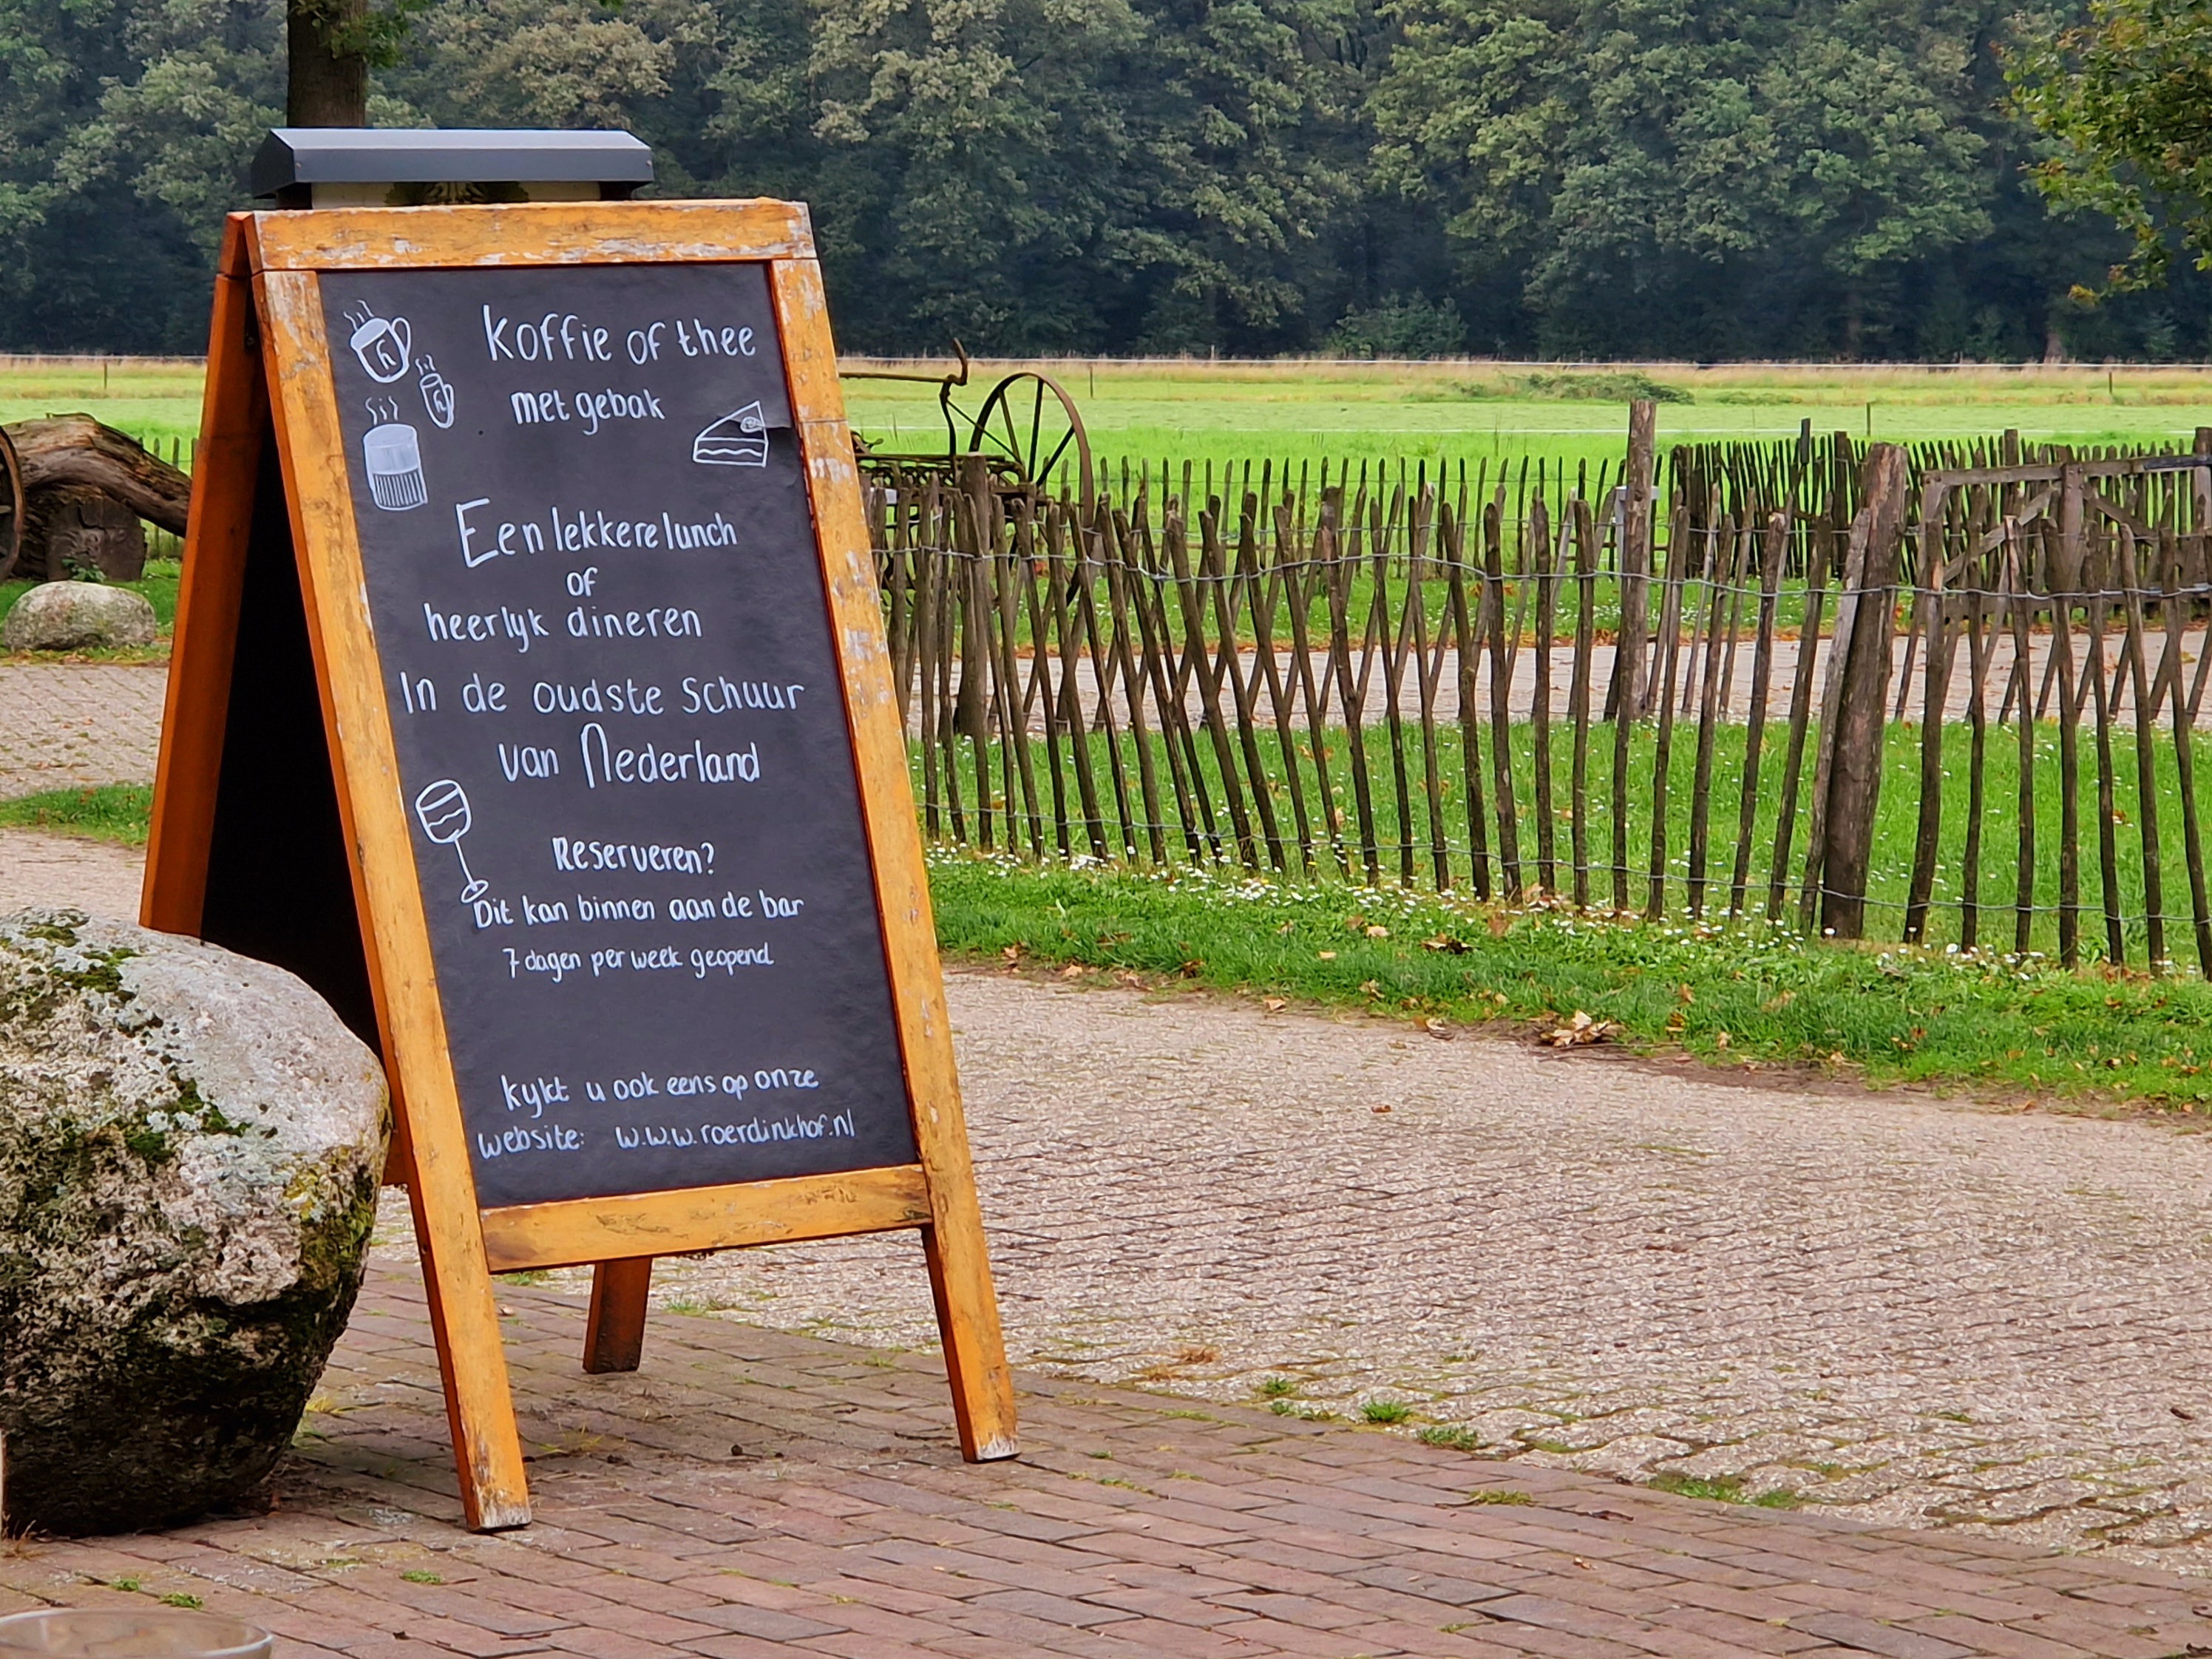 Koffie of thee
met gebak
Een lekkere lunch
of
heerlyk dineren
In de oudste Schuur
van Nederland
Reserveren?
Dit kan binnen aan de bar
7 dagen per week geopend
kykt u ook eens op onze
website: w.w.w.roerdinkhof.nl